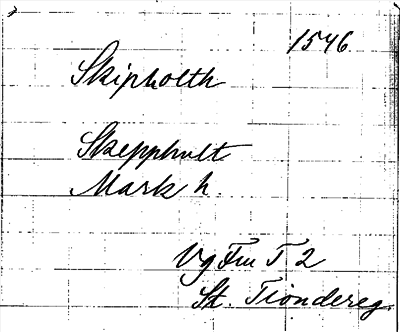 1546
Skipholth
Skepphult
Mark h.
Vg Fru T 2
St. Tiondereg.